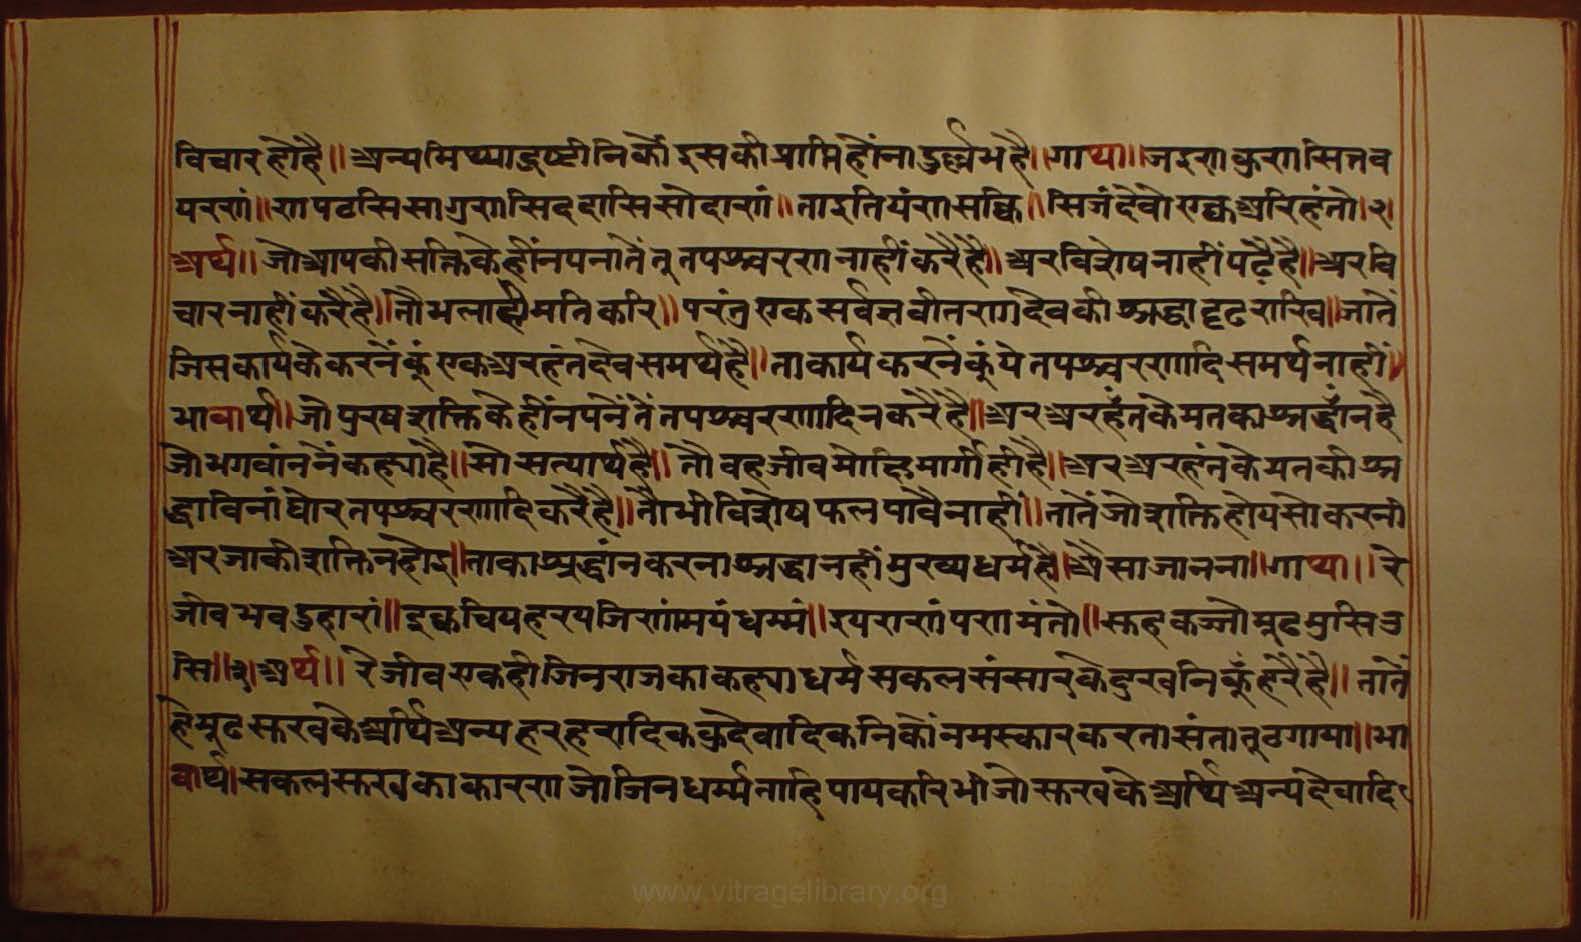 विचार होहै॥ अन्य मिथ्यादृष्टीनिकौं इसकी प्राप्ति होंना दुर्ल्लभ है॥ गाथा॥ जइ ण कुणसि तव
यरणं॥ ण पढसि ण गुणसि ददासि णो दाणं॥ ता इतियं ण सक्कि॥ सि जं देवो एक्क अरिहंतो।२।
अर्थ॥ जो आपकी सक्तिके हींनपनातें तू तपश्चरण नाहीं करैहै॥ अर विशेष नाहीं पढैहै॥ अर वि
चार नाहीं करैहै॥ तौ भला ही मति करि॥ परंतु एक सर्वज्ञ वीतराग देवकी श्रद्धा दृढ राखि॥ जातें
जिस कार्यके करनें कुं एक अरहंतदेव समर्थ है॥ ता कार्य करनें कुं ये तपश्चरणादि समर्थ नाहीं॥
भावार्थ॥ जो पुरष शक्तिके हींनपनेंतें तपश्चरणादि न करैहै॥ अर अरहंतके मतका श्रद्धांन है
जो भगवांननें कह्याहै॥ सो सत्यार्थ है॥ तौ वह जीव मोक्षिमार्गी ही है॥ अर अरहंतके मतकी श्र
द्धा विनां घोर तपश्चरणादि करैहै॥ तौभी विशेष फल पावै नाहीं॥ तातें जो शक्ति होय सो करनी
अर जाकी शक्ति न होइ॥ ताका श्रद्धांन करना श्रद्धान हीं मुख्य धर्म है॥ अैसा जानना॥ गाथा॥ रे
जीव भव दुहाणं॥ इक्कचिय हरय जिणंमयं धम्मं॥ इयराणं पणमंतो॥ सुह कज्जो मूढ मुसिउ
सि॥२॥ अर्थ॥ रे जीव एक ही जिनराजका कह्या धर्म सकल संसारके दुखनिकुं हरैहै॥ तातें
हे मूढ सुखके अर्थि अन्य हरहरादिक कुदेवादिकनिकों नमस्कार करता संता तू ठगाया॥ भा
वार्थ। सकल सुखका कारण जो जिनधर्म्म ताहि पायकरि भी जो सुखके अर्थि अन्य देवादि
www.vitragelibrary.org